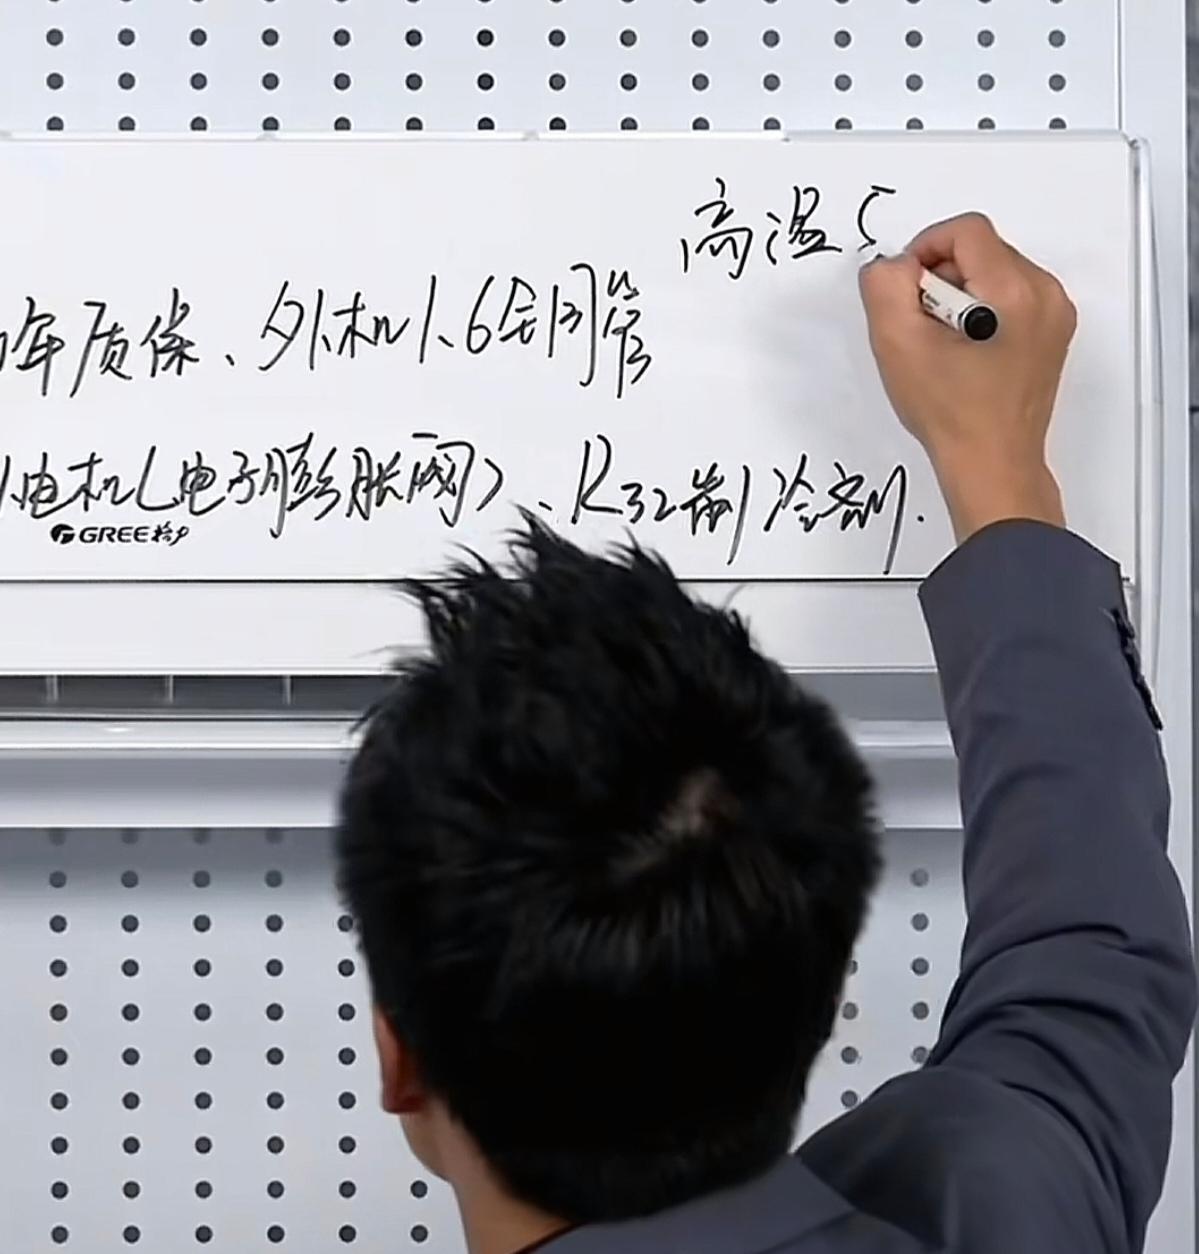 高温5
年质保、外机1.6全铜管
电机(电子膨胀阀)、R32制冷剂.
GREE格力